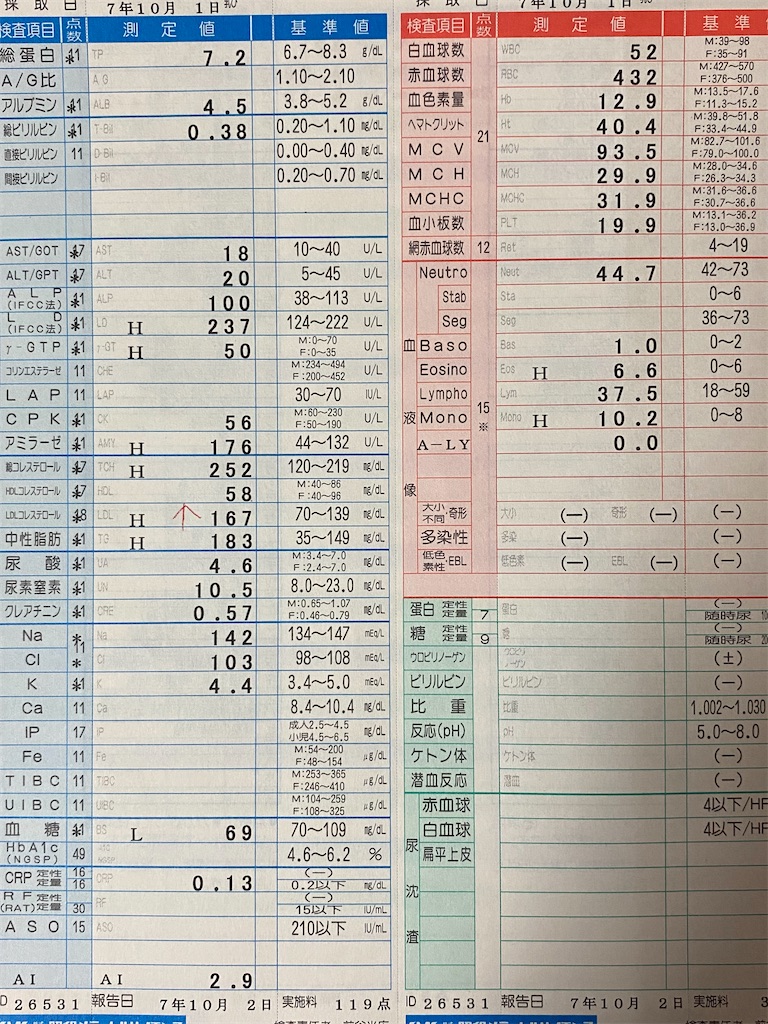 採取日 7年10月 1日
検査項目 点数 測定値 基準値
総蛋白 *11 TP 7.2 6.7〜8.3 g/dL
A/G比 AG 1.10〜2.10
アルブミン *11 ALB 4.5 3.8〜5.2 g/dL
総ビリルビン *11 T-Bil 0.38 0.20〜1.10 mg/dL
直接ビリルビン 11 D-Bil 0.00〜0.40 mg/dL
間接ビリルビン I-Bil 0.20〜0.70 mg/dL
AST/GOT *17 AST 18 10〜40 U/L
ALT/GPT *17 ALT 20 5〜45 U/L
ALP (IFCC法) *11 ALP 100 38〜113 U/L
LD (IFCC法) *11 LD H 237 124〜222 U/L
γ-GTP *11 γ-GT H 50 M:0〜70 F:0〜35 U/L
コリンエステラーゼ 11 CHE M:234〜494 F:200〜452 U/L
LAP 11 LAP 30〜70 IU/L
CPK *11 CK 56 M:60〜230 F:50〜190 U/L
アミラーゼ *11 AMY H 176 44〜132 U/L
総コレステロール *17 TCH H 252 120〜219 mg/dL
HDLコレステロール *17 HDL 58 M:40〜86 F:40〜96 mg/dL
LDLコレステロール *18 LDL H 167 70〜139 mg/dL
中性脂肪 *11 TG H 183 35〜149 mg/dL
尿酸 *11 UA 4.6 M:3.4〜7.0 F:2.4〜7.0 mg/dL
尿素窒素 *11 UN 10.5 8.0〜23.0 mg/dL
クレアチニン *11 CRE 0.57 M:0.65〜1.07 F:0.46〜0.79 mg/dL
Na * 11 Na 142 134〜147 mEq/L
Cl * Cl 103 98〜108 mEq/L
K *11 K 4.4 3.4〜5.0 mEq/L
Ca 11 Ca 8.4〜10.4 mg/dL
IP 17 IP 成人2.5〜4.5 小児4.5〜6.5 mg/dL
Fe 11 Fe M:54〜200 F:48〜154 μg/dL
TIBC 11 TIBC M:253〜365 F:246〜410 μg/dL
UIBC 11 UIBC M:104〜259 F:108〜325 μg/dL
血糖 *11 BS L 69 70〜109 mg/dL
HbA1c (NGSP) 49 4.6〜6.2 %
CRP 定性 16 定量 16 CRP 0.13 (ー) 0.2以下 mg/dL
RF (RAT) 定性 定量 30 RF (ー) 15以下 IU/mL
ASO 15 ASO 210以下 IU/mL
AI AI 2.9
ID 26531 報告日 7年10月 2日 実施料 119点
採取日 7年10月 1日
検査項目 点数 測定値 基準
白血球数 WBC 52 M:39〜98 F:35〜91
赤血球数 RBC 432 M:427〜570 F:376〜500
血色素量 Hb 12.9 M:13.5〜17.6 F:11.3〜15.2
ヘマトクリット Ht 40.4 M:39.8〜51.8 F:33.4〜44.9
21
MCV MCV 93.5 M:82.7〜101.6 F:79.0〜100.0
MCH MCH 29.9 M:28.0〜34.6 F:26.3〜34.3
MCHC MCHC 31.9 M:31.6〜36.6 F:30.7〜36.6
血小板数 PLT 19.9 M:13.1〜36.2 F:13.0〜36.9
網赤血球数 12 Ret 4〜19
血液像 15 ※
Neutro Neut 44.7 42〜73
Stab Sta 0〜6
Seg Seg 36〜73
Baso Bas 1.0 0〜2
Eosino Eos H 6.6 0〜6
Lympho Lym 37.5 18〜59
Mono Mono H 10.2 0〜8
A-LY 0.0
大小不同・奇形 大小 (ー) 奇形 (ー) (ー)
多染性 多染 (ー) (ー)
低色素性・EBL 低色素 (ー) EBL (ー) (ー)
蛋白 定性 定量 7 蛋白 (ー) 随時尿
糖 定性 定量 9 糖 (ー) 随時尿
ウロビリノーゲン ウロビリノーゲン (±)
ビリルビン ビリルビン (ー)
比重 比重 1.002〜1.030
反応(pH) pH 5.0〜8.0
ケトン体 ケトン体 (ー)
潜血反応 潜血 (ー)
尿沈渣
赤血球 4以下/HF
白血球 4以下/HF
扁平上皮
ID 26531 報告日 7年10月 2日 実施料